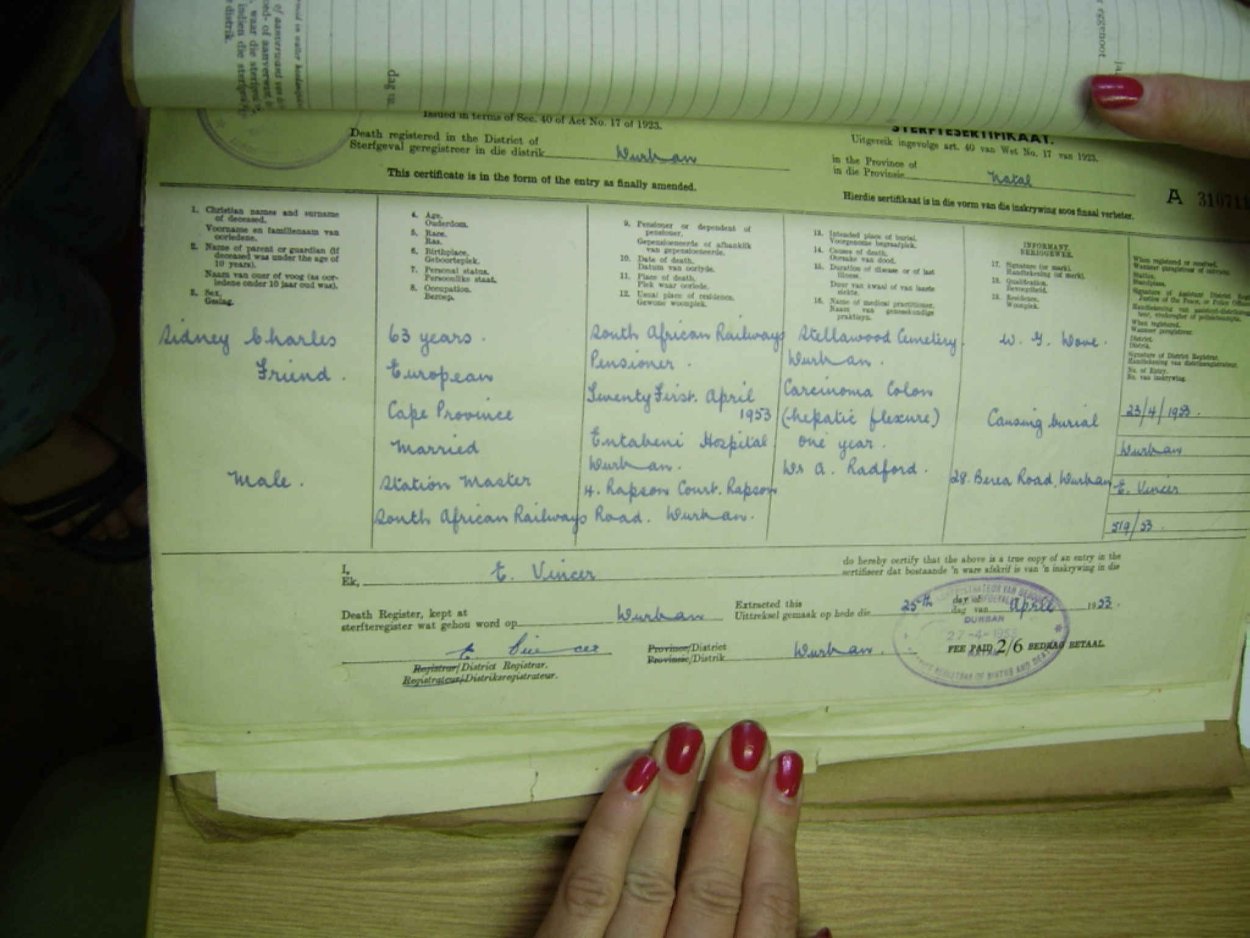 dag van
Issued in terms of Sec. 40 of Act No. 17 of 1923.
STERFTESERTIFIKAAT.
Uitgereik ingevolge art. 40 van Wet No. 17 van 1923.
Death registered in the District of
Sterfgeval geregistreer in die distrik Durban
in the Province of
in die Provinsie Natal
This certificate is in the form of the entry as finally amended.
Hierdie sertifikaat is in die vorm van die inskrywing soos finaal verbeter.
A 31071
1. Christian names and surname
of deceased.
Voornaam en familienaam van
oorledene.
2. Name of parent or guardian (if
deceased was under the age of
10 years).
Naam van ouer of voog (as oor-
ledene onder 10 jaar oud was).
3. Sex.
Geslag.
Sidney Charles
Friend.
Male.
4. Age.
Ouderdom.
5. Race.
Ras.
6. Birthplace.
Geboorteplek.
7. Personal status.
Persoonlike staat.
8. Occupation.
Beroep.
63 years.
European
Cape Province
Married
Station Master
South African Railways
9. Pensioner or dependent of
pensioner.
Gepensioeneerde of afhanklik
van gepensioeneerde.
10. Date of death.
Datum van oorlye.
11. Place of death.
Plek waar oorlede.
12. Usual place of residence.
Gewone woonplek.
South African Railways
Pensioner.
Twenty First. April
1953
Entabeni Hospital
Durban.
4. Rapson Court. Rapson
Road. Durban.
13. Intended place of burial.
Voorgenome begraafplek.
14. Causes of death.
Oorsake van dood.
15. Duration of disease or of last
illness.
Duur van kwaal of van laaste
siekte.
16. Name of medical practitioner.
Naam van geneeskundige
praktisyn.
Stellawood Cemetery.
Durban.
Carcinoma Colon
(hepatic flexure)
one year.
Dr A. Radford.
INFORMANT.
17. Signature (or mark).
Handtekening (of merk).
18. Qualification.
Bevoegdheid.
19. Residence.
Woonplek.
W. G. Dove.
Causing burial
28. Berea Road, Durban
When registered or received.
Station.
Standplaas.
When registered.
Wanneer geregistreer.
District.
Distrik.
Signature of District Registrar.
Handtekening van distriksregistrateur.
No. of Entry.
No. van inskrywing.
23/4/1953.
Durban
E. Vincer
519/53.
I,
Ek, E. Vincer
do hereby certify that the above is a true copy of an entry in the
sertifiseer dat bostaande 'n ware afskrif is van 'n inskrywing in die
Death Register, kept at
sterfteregister wat gehou word op Durban
Extracted this
Uittreksel gemaak op hede die 25th
day of
dag van April 1953.
E Vincer
Registrar/District Registrar.
Registrateur/Distriksregistrateur.
Province/District
Provinsie/Distrik Durban.
DURBAN
27-4-1953
NATAL
FEE PAID 2/6 BEDRAG BETAAL.